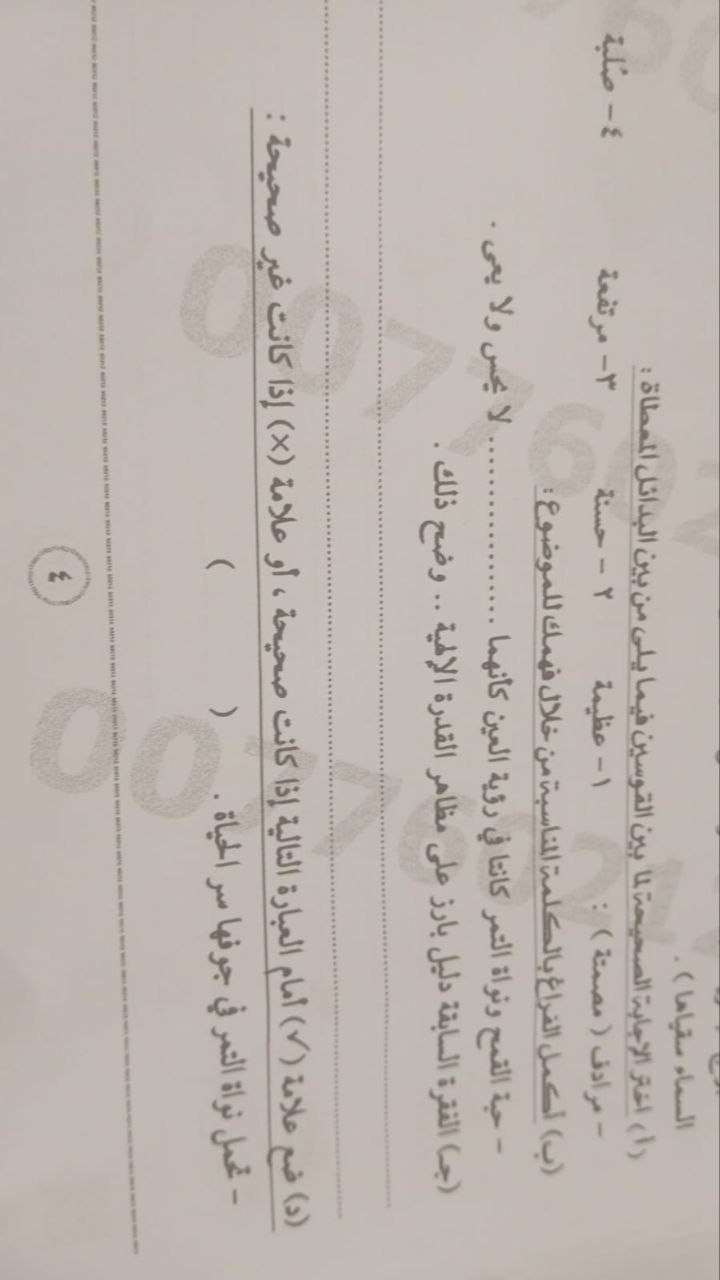 السماء سقياها ) .
(أ) اختر الإجابة الصحيحة لما بين القوسين فيما يلى من بين البدائل المعطاة :
- مرادف ( مصمتة ) : ١- عظيمة ٢- حسنة ٣- مرتفعة ٤- صُلبة
(ب) أكمل الفراغ بالكلمة المناسبة من خلال فهمك للموضوع :
- حبة القمح ونواة التمر كانتا فى رؤية العين كأنهما .................. لا يحس ولا يعى .
(جـ) الفقرة السابقة دليل بارز على مظاهر القدرة الإلهية .. وضح ذلك .
(د) ضع علامة (√) أمام العبارة التالية إذا كانت صحيحة ، أو علامة (×) إذا كانت غير صحيحة :
- تحمل نواة التمر فى جوفها سر الحياة . ( )
٤